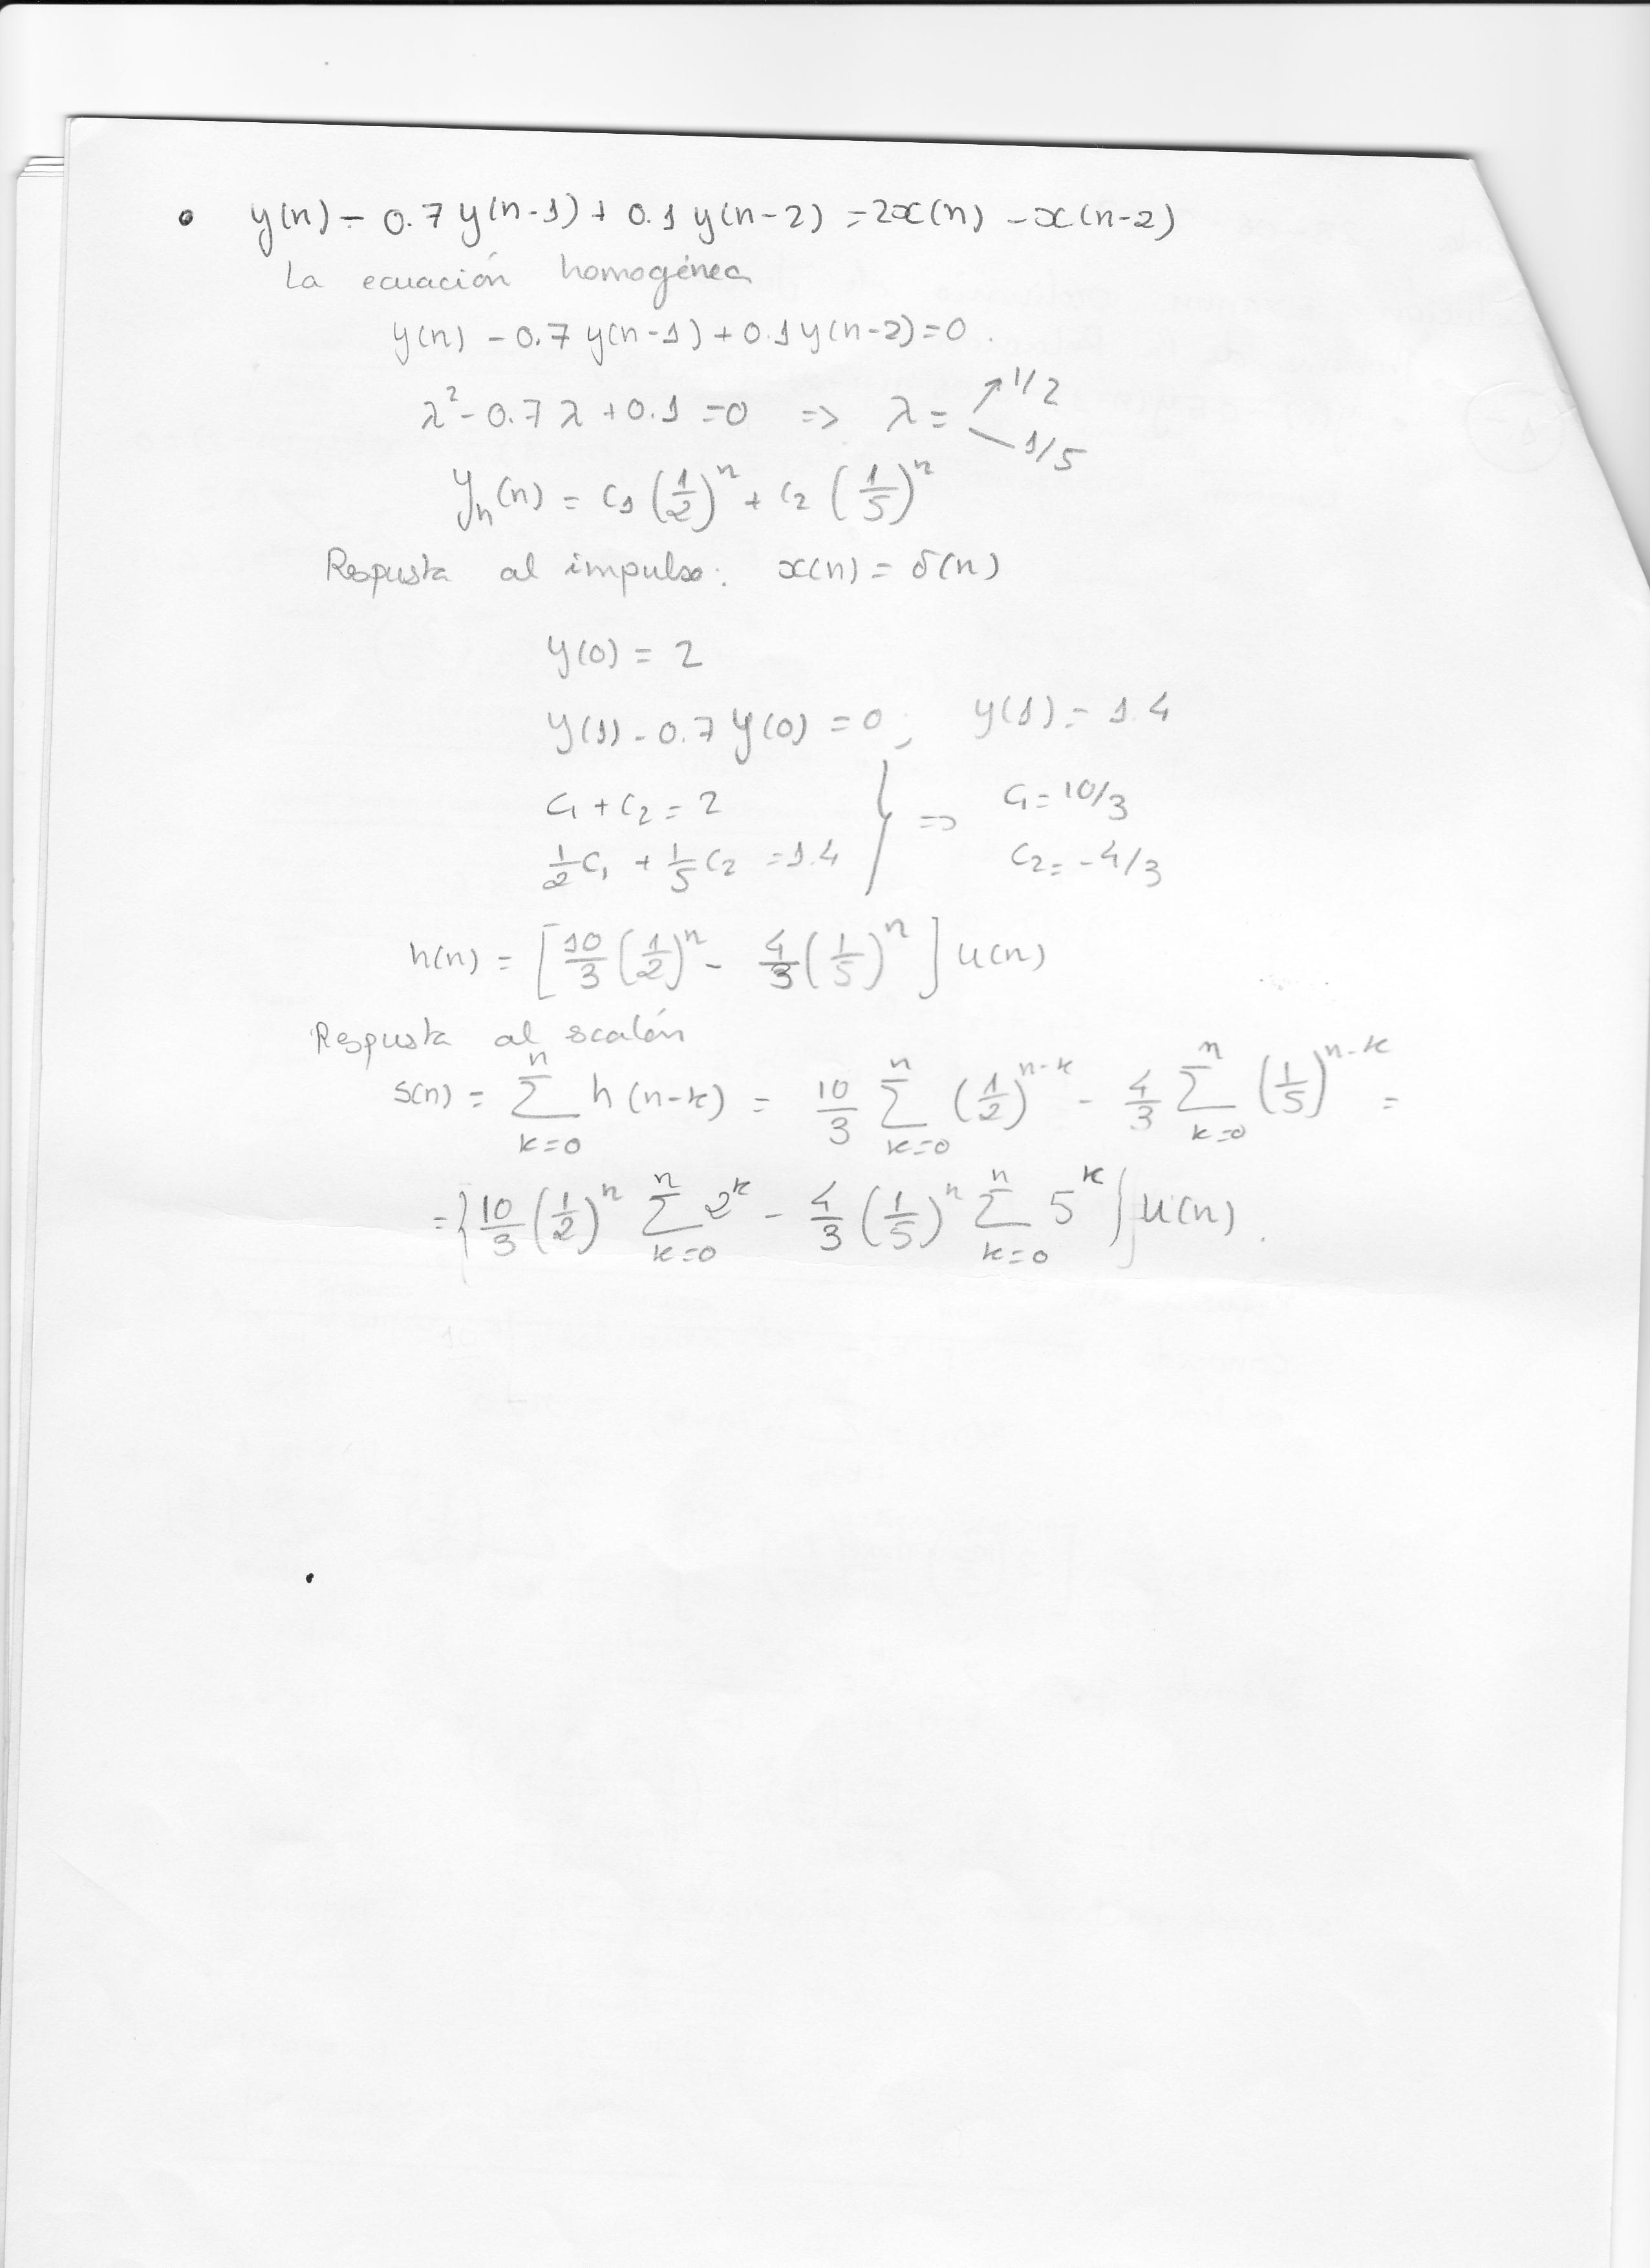 • y(n) - 0.7 y(n-1) + 0.1 y(n-2) = 2x(n) - x(n-2)
La ecuación homogénea
y(n) - 0.7 y(n-1) + 0.1 y(n-2) = 0.
λ² - 0.7 λ + 0.1 = 0 => λ = 1/2
1/5
y_h(n) = c1 (1/2)^n + c2 (1/5)^n
Respusta al impulso: x(n) = δ(n)
y(0) = 2
y(1) - 0.7 y(0) = 0; y(1) = 1.4
c1 + c2 = 2 } => c1 = 10/3
1/2 c1 + 1/5 c2 = 1.4 c2 = -4/3
h(n) = [10/3 (1/2)^n - 4/3 (1/5)^n] u(n)
Respusta al scalón
s(n) = Σ_{k=0}^{n} h(n-k) = 10/3 Σ_{k=0}^{n} (1/2)^{n-k} - 4/3 Σ_{k=0}^{n} (1/5)^{n-k} =
= {10/3 (1/2)^n Σ_{k=0}^{n} 2^k - 4/3 (1/5)^n Σ_{k=0}^{n} 5^k} u(n).